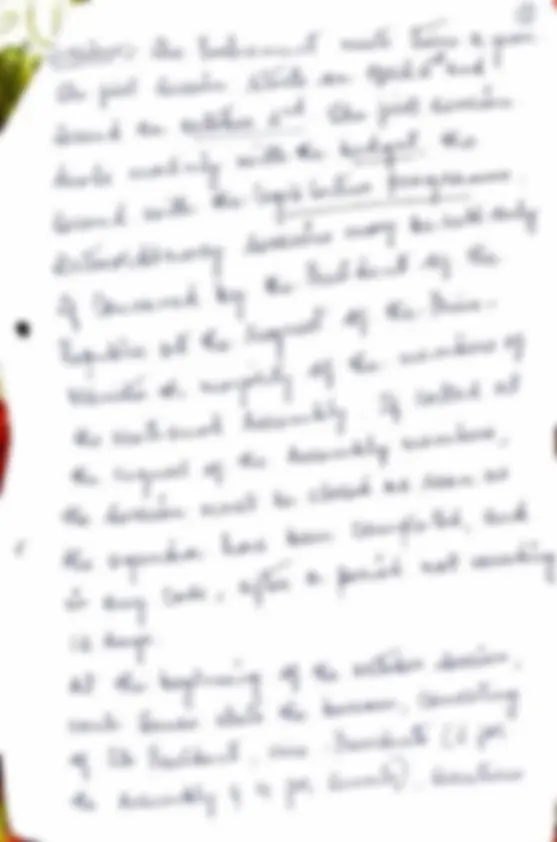 The Parliament meets twice a year
The first session starts on April 2nd and
second on October 2nd. The first session
deals mainly with the budget, the
second with the legislative programme.
Extraordinary sessions may be held only
if convened by the President of the
Republic at the request of the Prime-
Minister or majority of the members of
the National Assembly. If called at
the request of the Assembly members,
the session must be closed as soon as
the agenda has been completed, and
in any case, after a period not exceeding
12 days.
At the beginning of the October session,
each house elects the bureau, consisting
of its President, vice-Presidents (6 for
the Assembly & 4 for Senate),